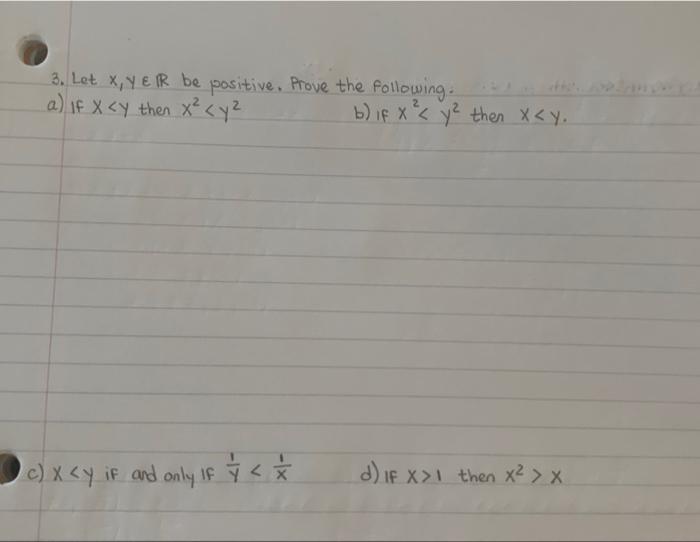 3. Let x, y ∈ ℝ be positive. Prove the following:
a) If x < y then x² < y²
b) If x² < y² then x < y.
c) x < y if and only if 1/y < 1/x
d) If x > 1 then x² > x